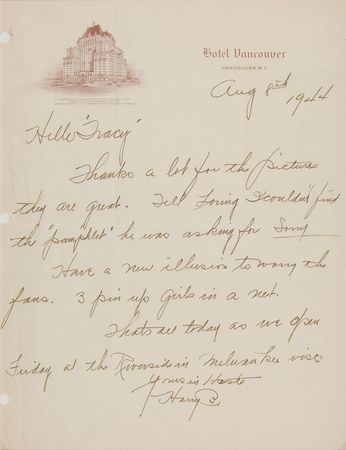 Hotel Vancouver
VANCOUVER, B.C.
Aug 8th 1944
Hello "Tracy"
Thanks a lot for the pictures
they are great. Tell Loring I couldn't find
the "pamphlet" he was asking for Sorry
Have a new illusion to worry the
fans. 3 pin up girls in a net.
Thats all today as we open
Friday at the Riverside in Milwaukee wisc
Yours in Haste
Harry B.